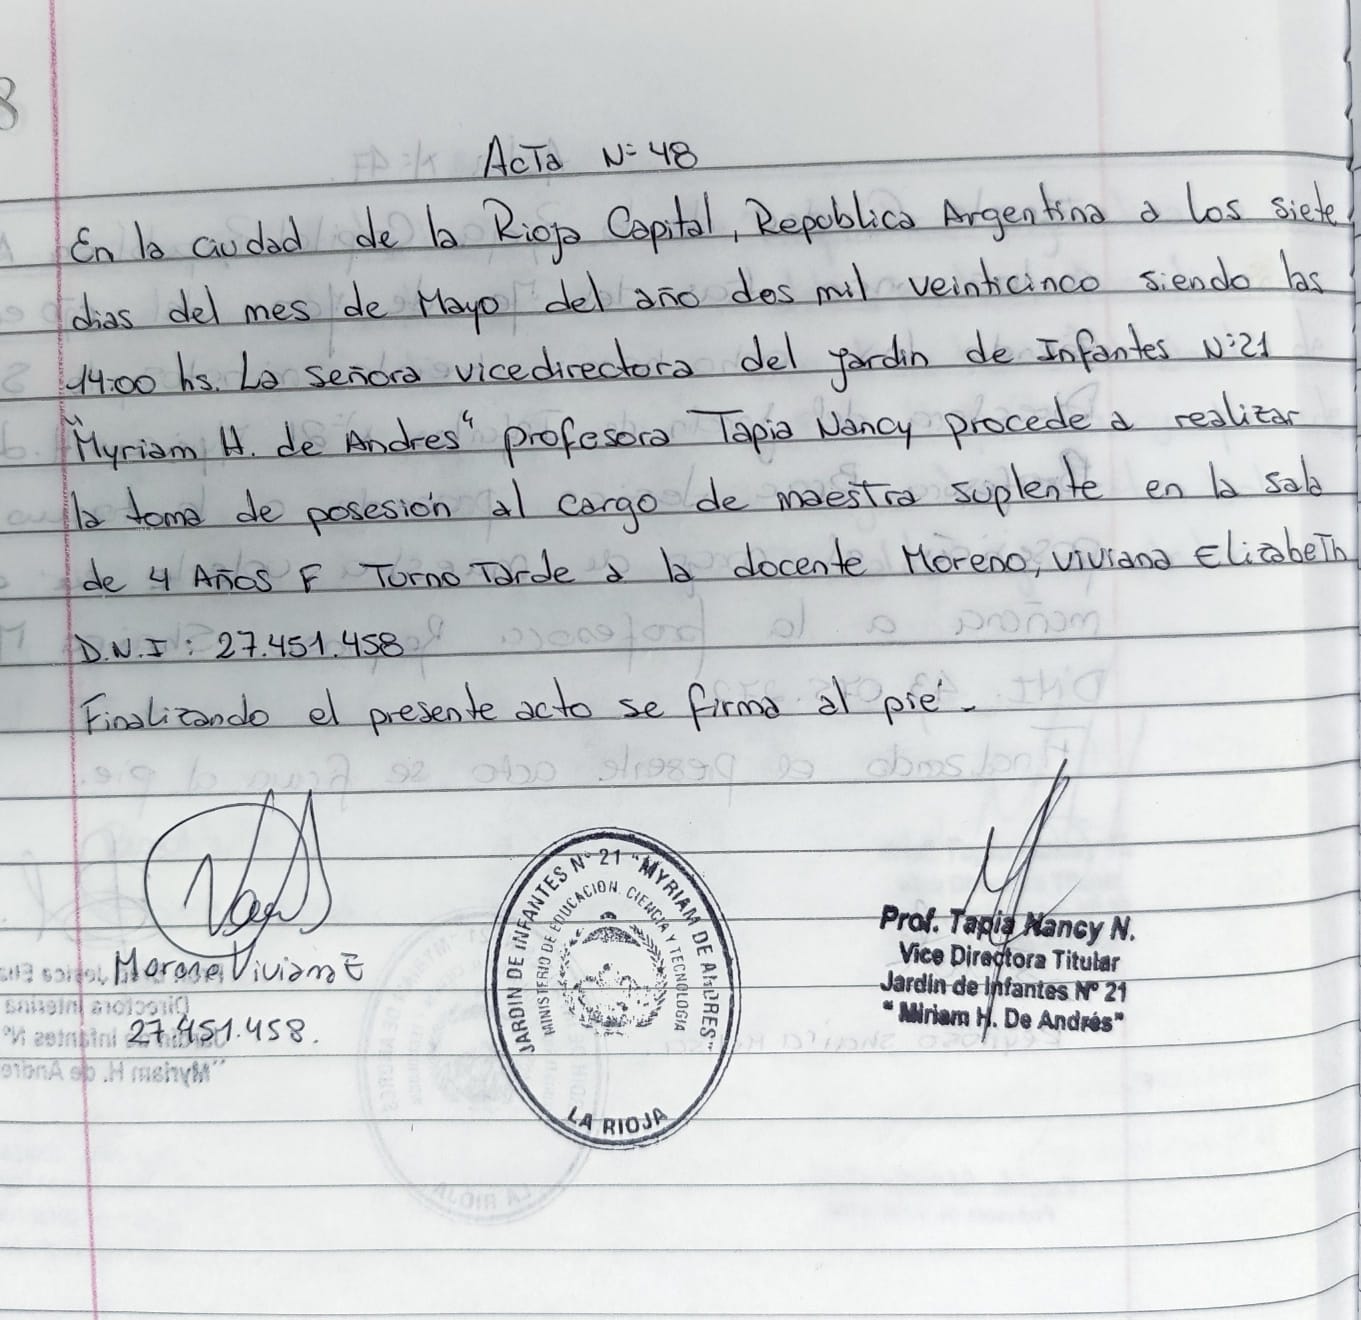 Acta N: 48
En la ciudad de la Rioja Capital, Republica Argentina a los siete
dias del mes de Mayo del año dos mil veinticinco siendo las
14:00 hs. La señora vicedirectora del jardin de Infantes N:21
"Myriam H. de Andres" profesora Tapia Nancy procede a realizar
la toma de posesión al cargo de maestra suplente en la sala
de 4 Años F Turno Tarde a la docente Moreno, Viviana Elizabeth
D.N.I: 27.451.458
Finalizando el presente acto se firma al pie.
Moreno Viviana E
27.451.458.
JARDIN DE INFANTES Nº 21 "MYRIAM DE ANDRES"
MINISTERIO DE EDUCACION, CIENCIA Y TECNOLOGIA
LA RIOJA
Prof. Tapia Nancy N.
Vice Directora Titular
Jardin de Infantes Nº 21
"Miriam H. De Andrés"